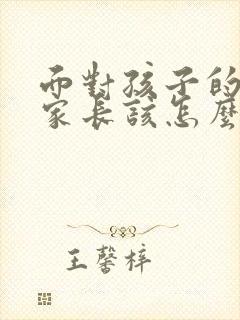 而對孩子的
家長該怎麼
王馨梓